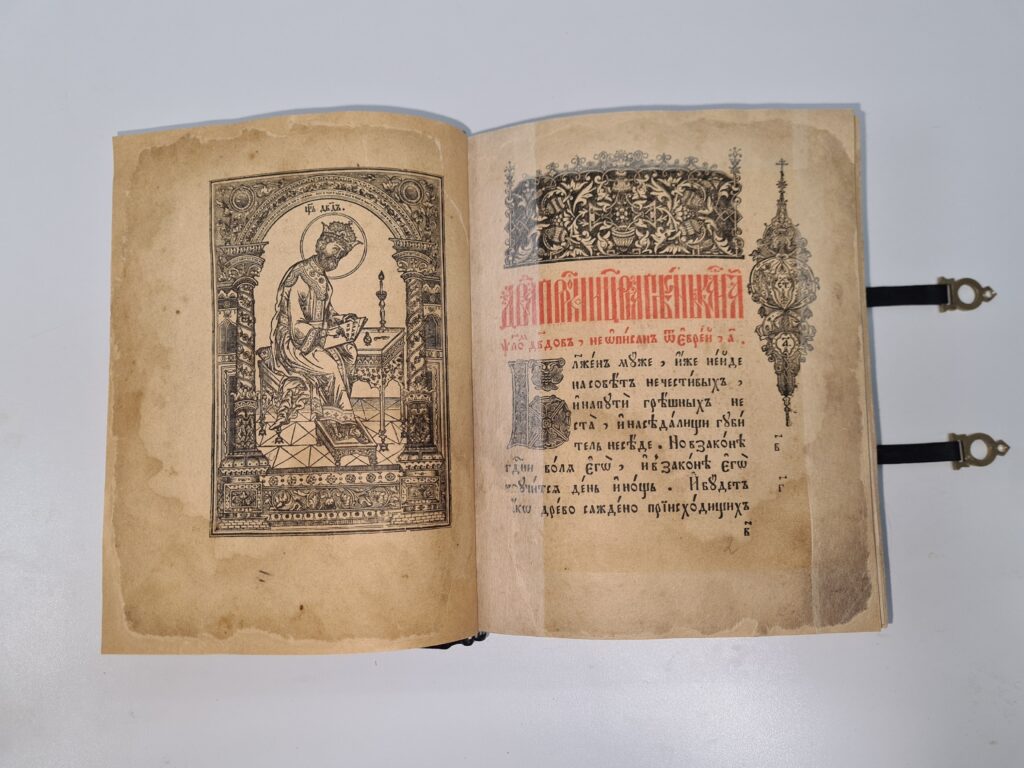 цр҃ь дв҃дъ.
ѱал҇о дв҃довъ , не ѡписан ѿ є҆врей , а҃ .
Бл҃же́н мужъ , и҆́же не и҆́де
на совѣ́тъ нечести́выхъ ,
и҆ на пути̑ грѣ́шныхъ не
ста̀ , и҆ на сѣда́лищи губи́
тель не сѣ́де . Но в зако́нѣ
гдⷭ҇ни во́ля є҆гѡ̀ , и҆ в зако́нѣ є҆гѡ̀
поучи́тся де́нь и҆ но́щь . И҆ бу́детъ
ꙗ҆́кѡ дре́во сажде́но при и҆схо́дищихъ
а҃
в҃
г҃
в҃
2